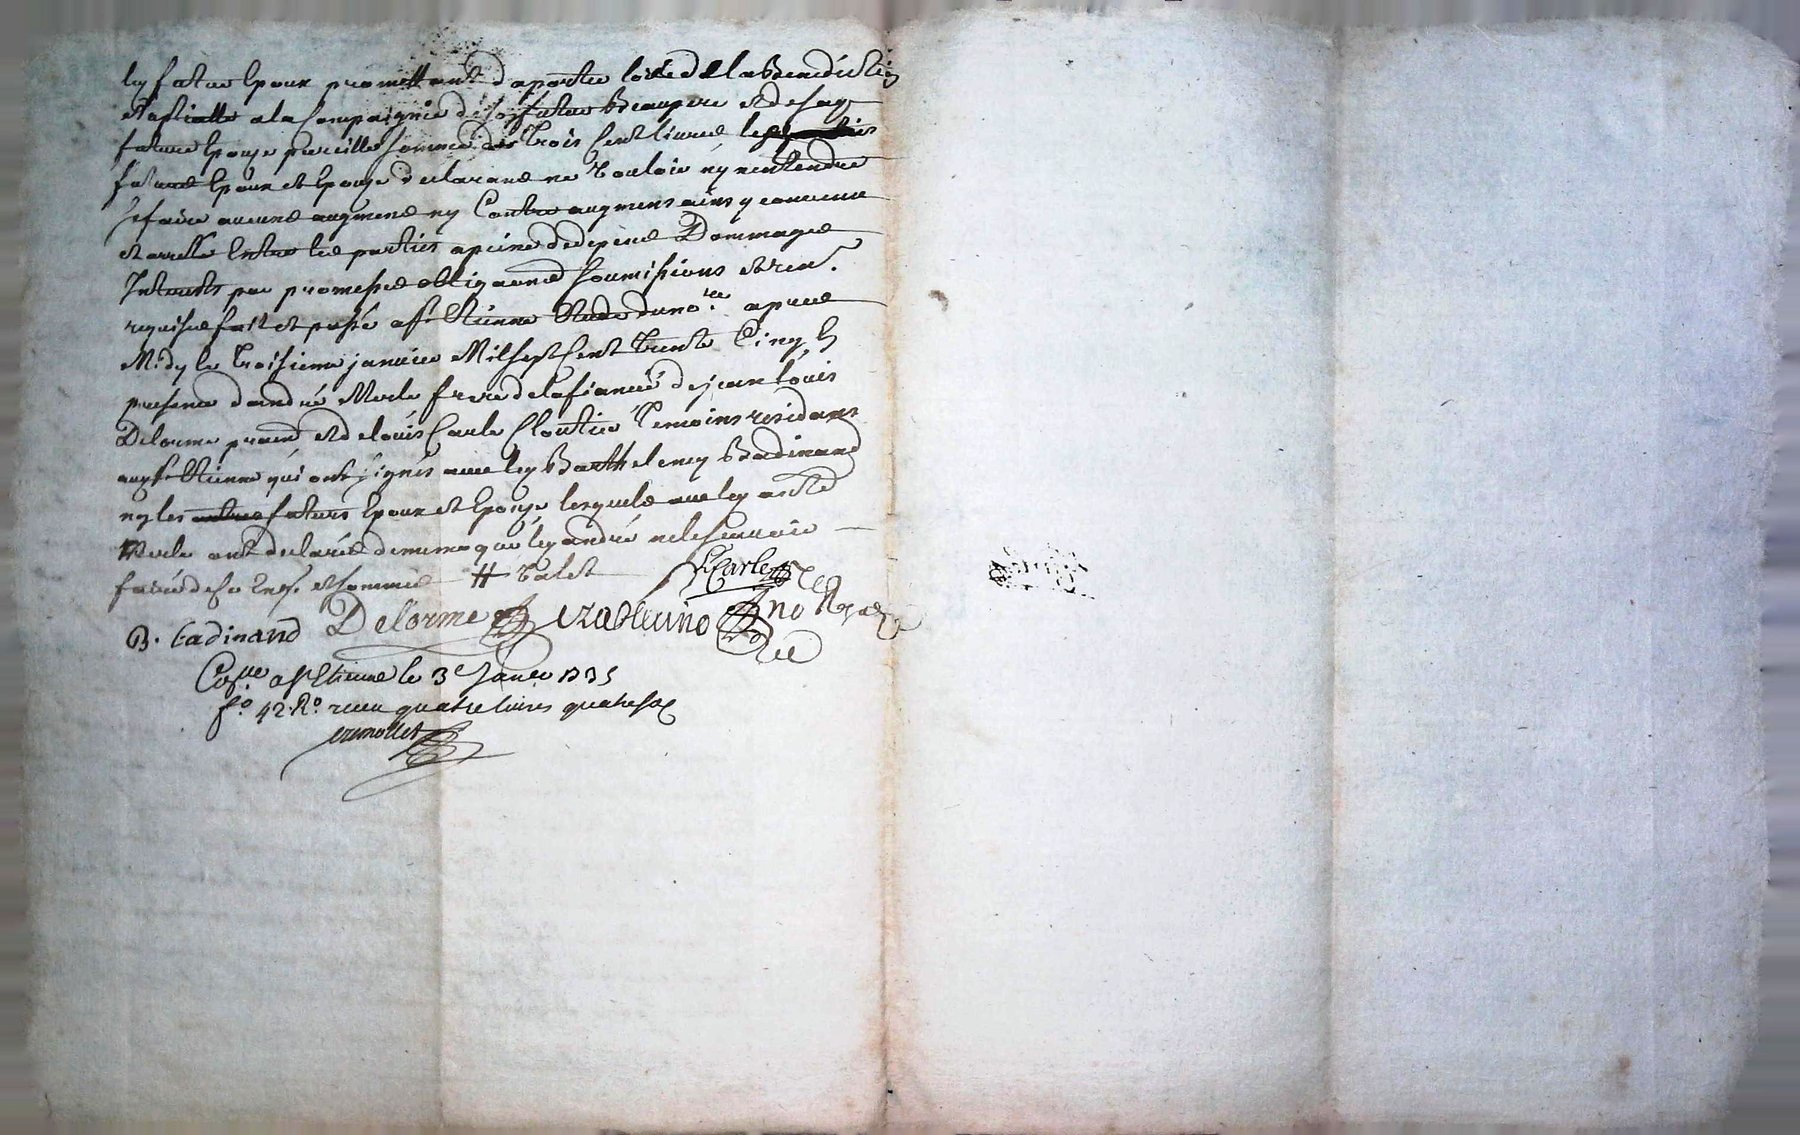 ly futur Epoux promettant d'aporter lors de la Benediction
et a la Compaignie de son futur Beaupere et de sa
future Epouse pareille somme de Trois Cent livres
futurs Epoux et Epouse declarant ne vouloir ny entendre
se faire aucune augment ny Contre augment ainsy convenu
et arresté Entre les parties a peine de depens Dommages
Interests par promesses obligaons soumissions et ren.
requises fait et passé a St Etienne Etude du no.re apres
Midy le Troisieme janvier Mil sept Cent trente Cinq En
presence d'andré Merle frere de la fiancée de jean louis
Delorme prané et de louis Carle Cloutier Temoins residants
aud St Etienne qui ont signés avec led Barthelemy Badinand
ny les futurs Epoux et Epouse lesquels avec led
Merle ont declarés de meme que led andré ne le scavoir
faire de ce Enq. et sommés # valet
LCarle
B. badinand Delorme no Royal
Co.lle a St Etienne le 3e Janer 1735
fo. 42. Ro. receu quatre livres quatre